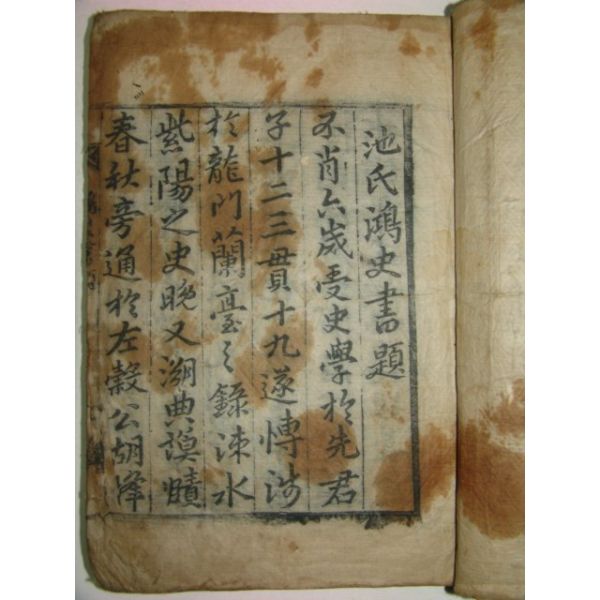 池氏鴻史書題
不肖六歲受史學於先君
子十二三貫十九遂博涉
於龍門蘭臺之錄涑水
紫陽之史晚又溯典謨賾
春秋旁通於左穀公胡